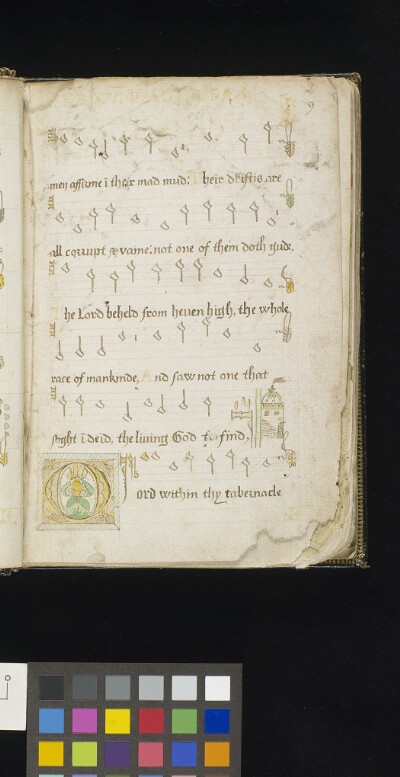 9
men assume ī thair mad mud: heir driftis are
all corrupt & vaine: not one of them doth gude,
he Lord beheld from heuen high, the whole
race of mankinde, And saw not one that
soght ī deid, the liuing God to find,
ord within thy tabernacle